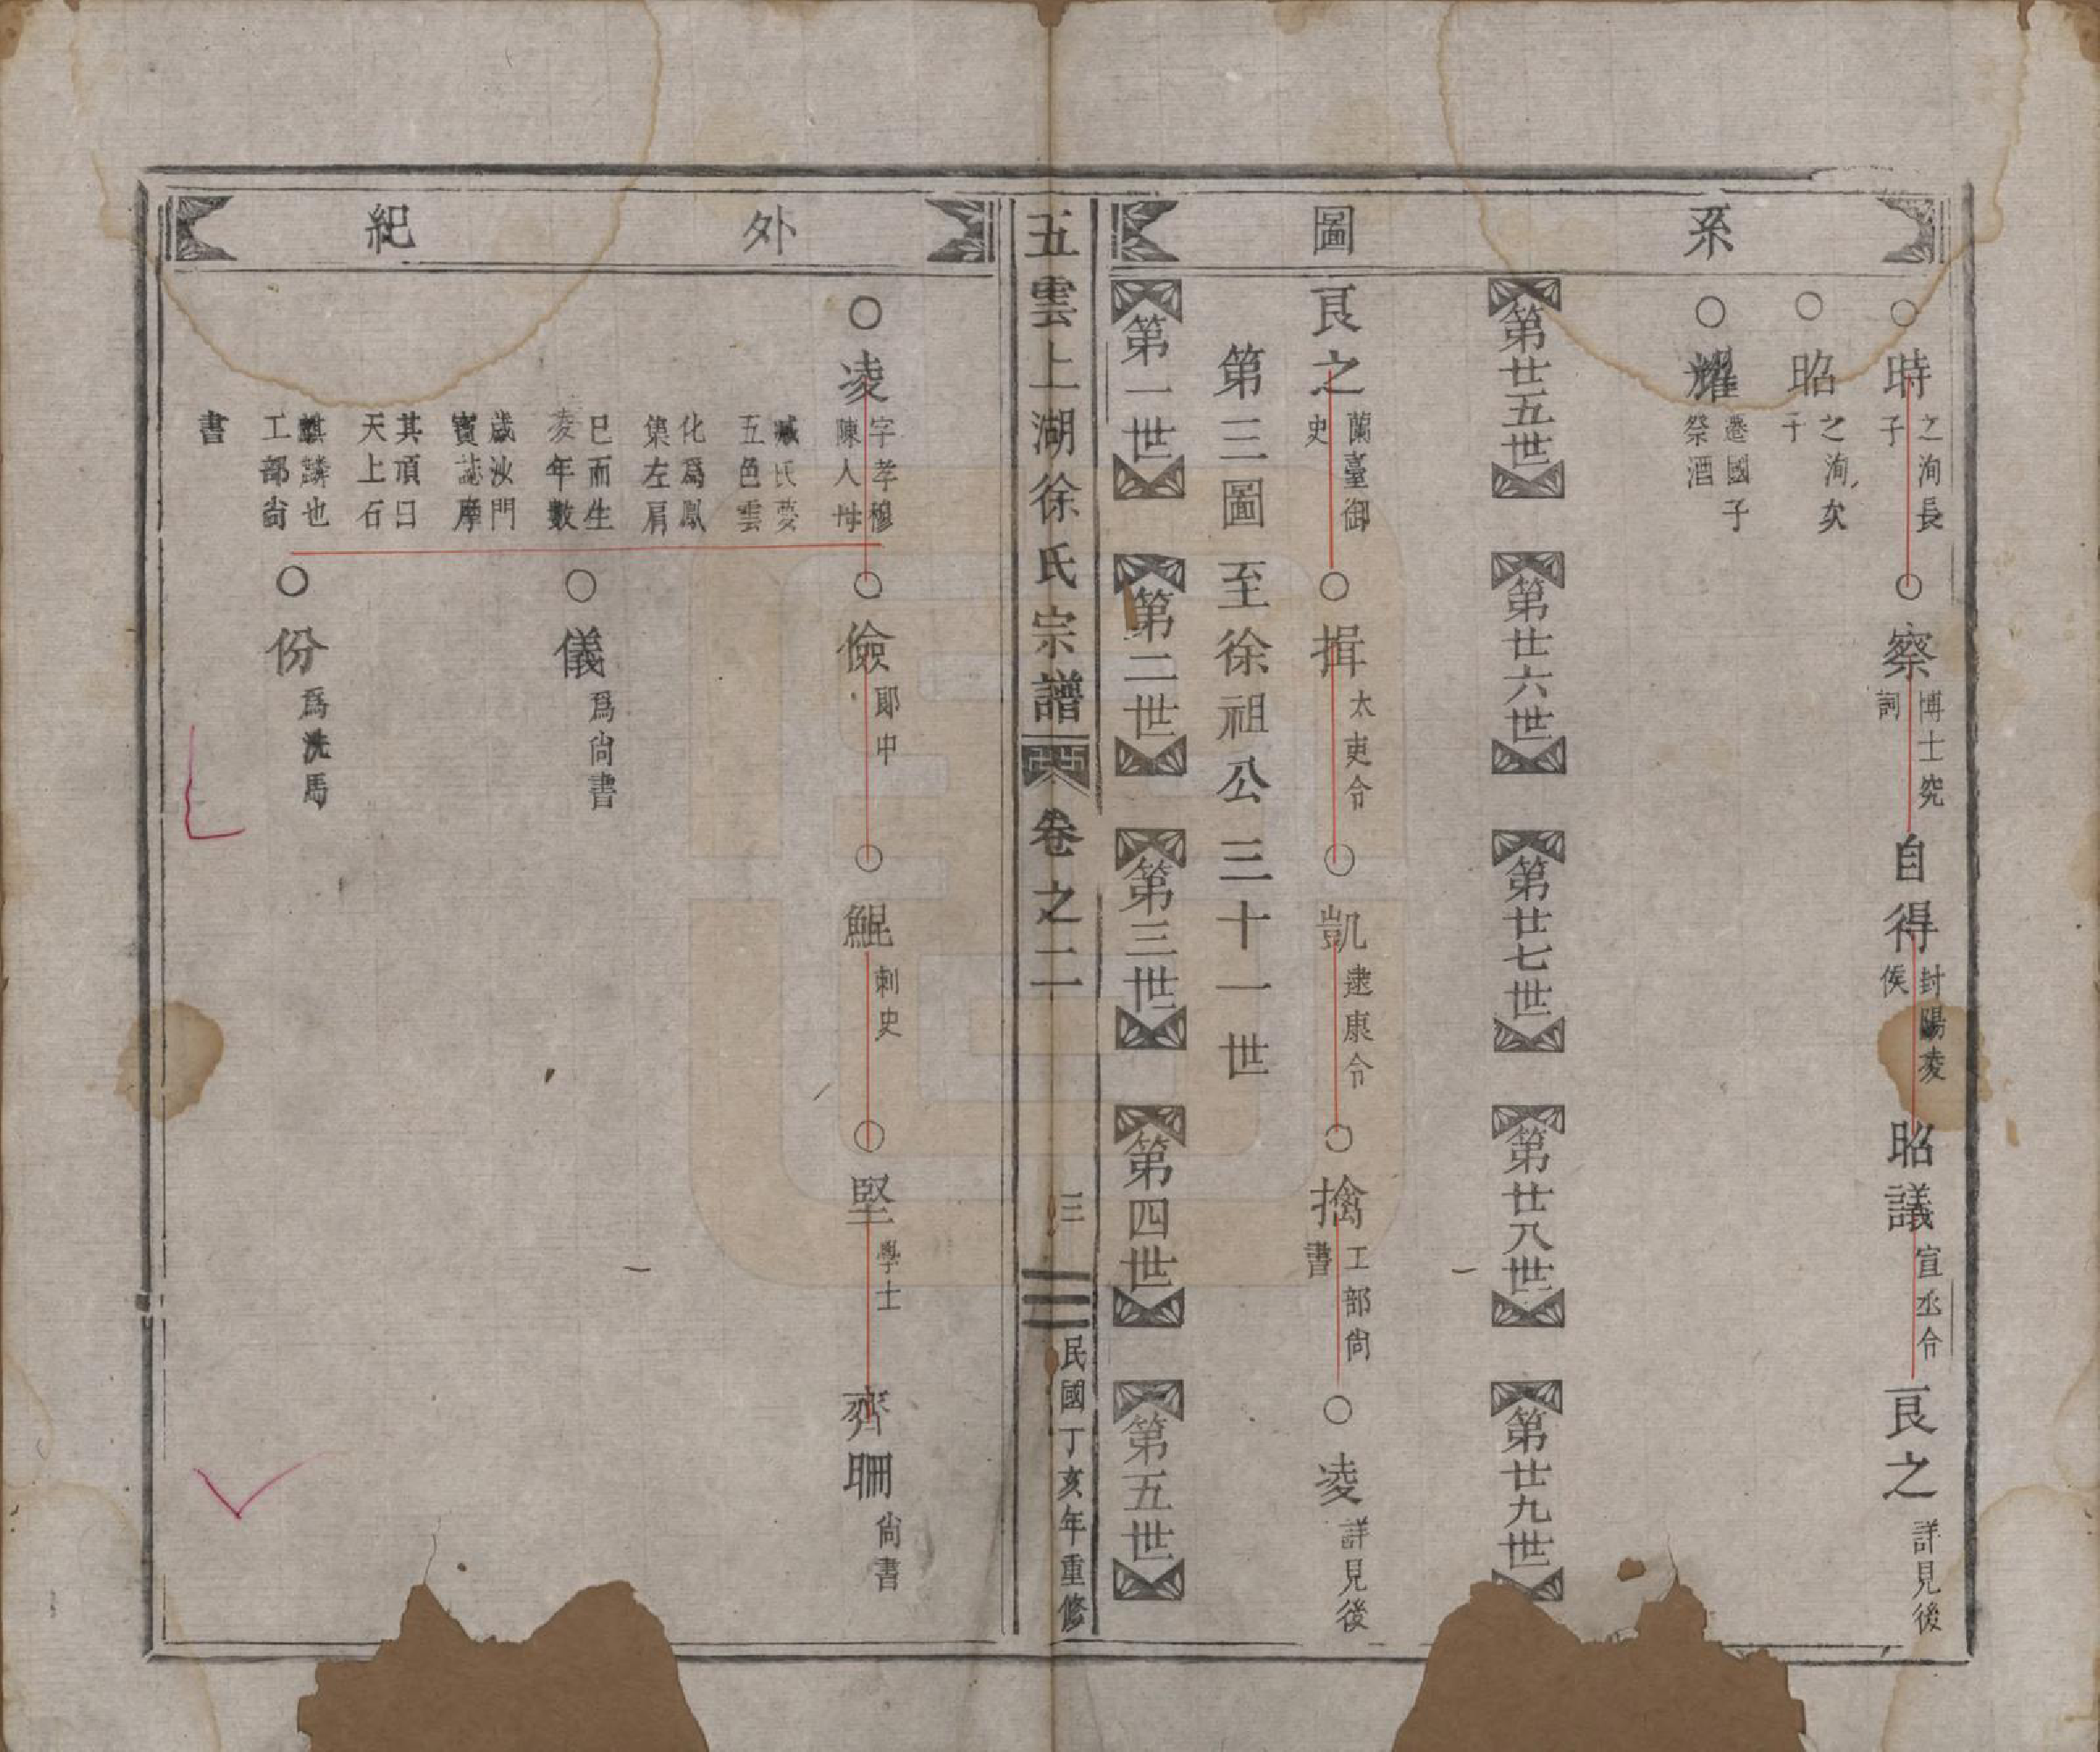 系圖
○時 之洵長子
○察 博士究詞
自得 封陽凌侯
昭議 宣丞令
良之 詳見後
○昭 之洵次子
○耀 遷國子祭酒
第廿五世
第廿六世
第廿七世
第廿八世
第廿九世
良之 蘭臺御史
○揖 太吏令
○凱 建康令
○擒 工部尙書
○凌 詳見後
第三圖至徐祖公三十一世
第一世
第二世
第三世
第四世
第五世
五雲上湖徐氏宗譜 卷之二 三 民國丁亥年重修
外紀
○凌 字孝穆陳人母臧氏夢五色雲化爲鳳集左肩巳而生凌年數歲沙門寶誌摩其頂曰天上石麒麟也工部尙書
○儉 郞中
○鯤 刺史
○堅 學士
齊聃 尙書
○儀 爲尙書
○份 爲洗馬